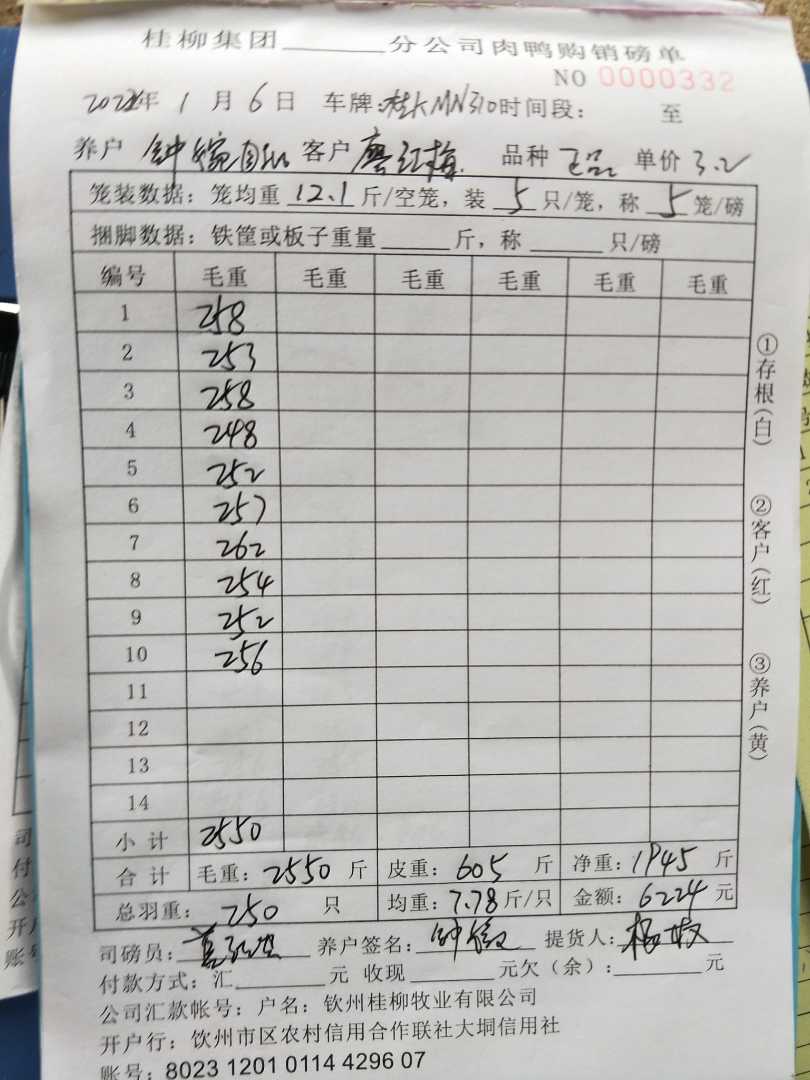 桂柳集团______分公司肉鸭购销磅单
NO 0000332
2022年 1 月 6 日 车牌:桂KMN310时间段: 至
养户 钟 客户 廖红梅 品种 王品 单价 3.2
笼装数据: 笼均重 12.1 斤/空笼, 装 5 只/笼, 称 5 笼/磅
捆脚数据: 铁筐或板子重量______斤, 称______只/磅
编号 毛重 毛重 毛重 毛重 毛重 毛重
1 258
2 253
3 258
4 248
5 252
6 257
7 262
8 254
9 252
10 256
11
12
13
14
小计 2550
合计 毛重: 2550 斤 皮重: 605 斤 净重: 1945 斤
总羽重: 250 只 均重: 7.78 斤/只 金额: 6224 元
司磅员: 养户签名: 钟 提货人: 杨
付款方式: 汇______元 收现______元欠(余):______元
公司汇款帐号: 户名: 钦州桂柳牧业有限公司
开户行: 钦州市区农村信用合作联社大垌信用社
账号: 8023 1201 0114 4296 07
①存根(白)
②客户(红)
③养户(黄)